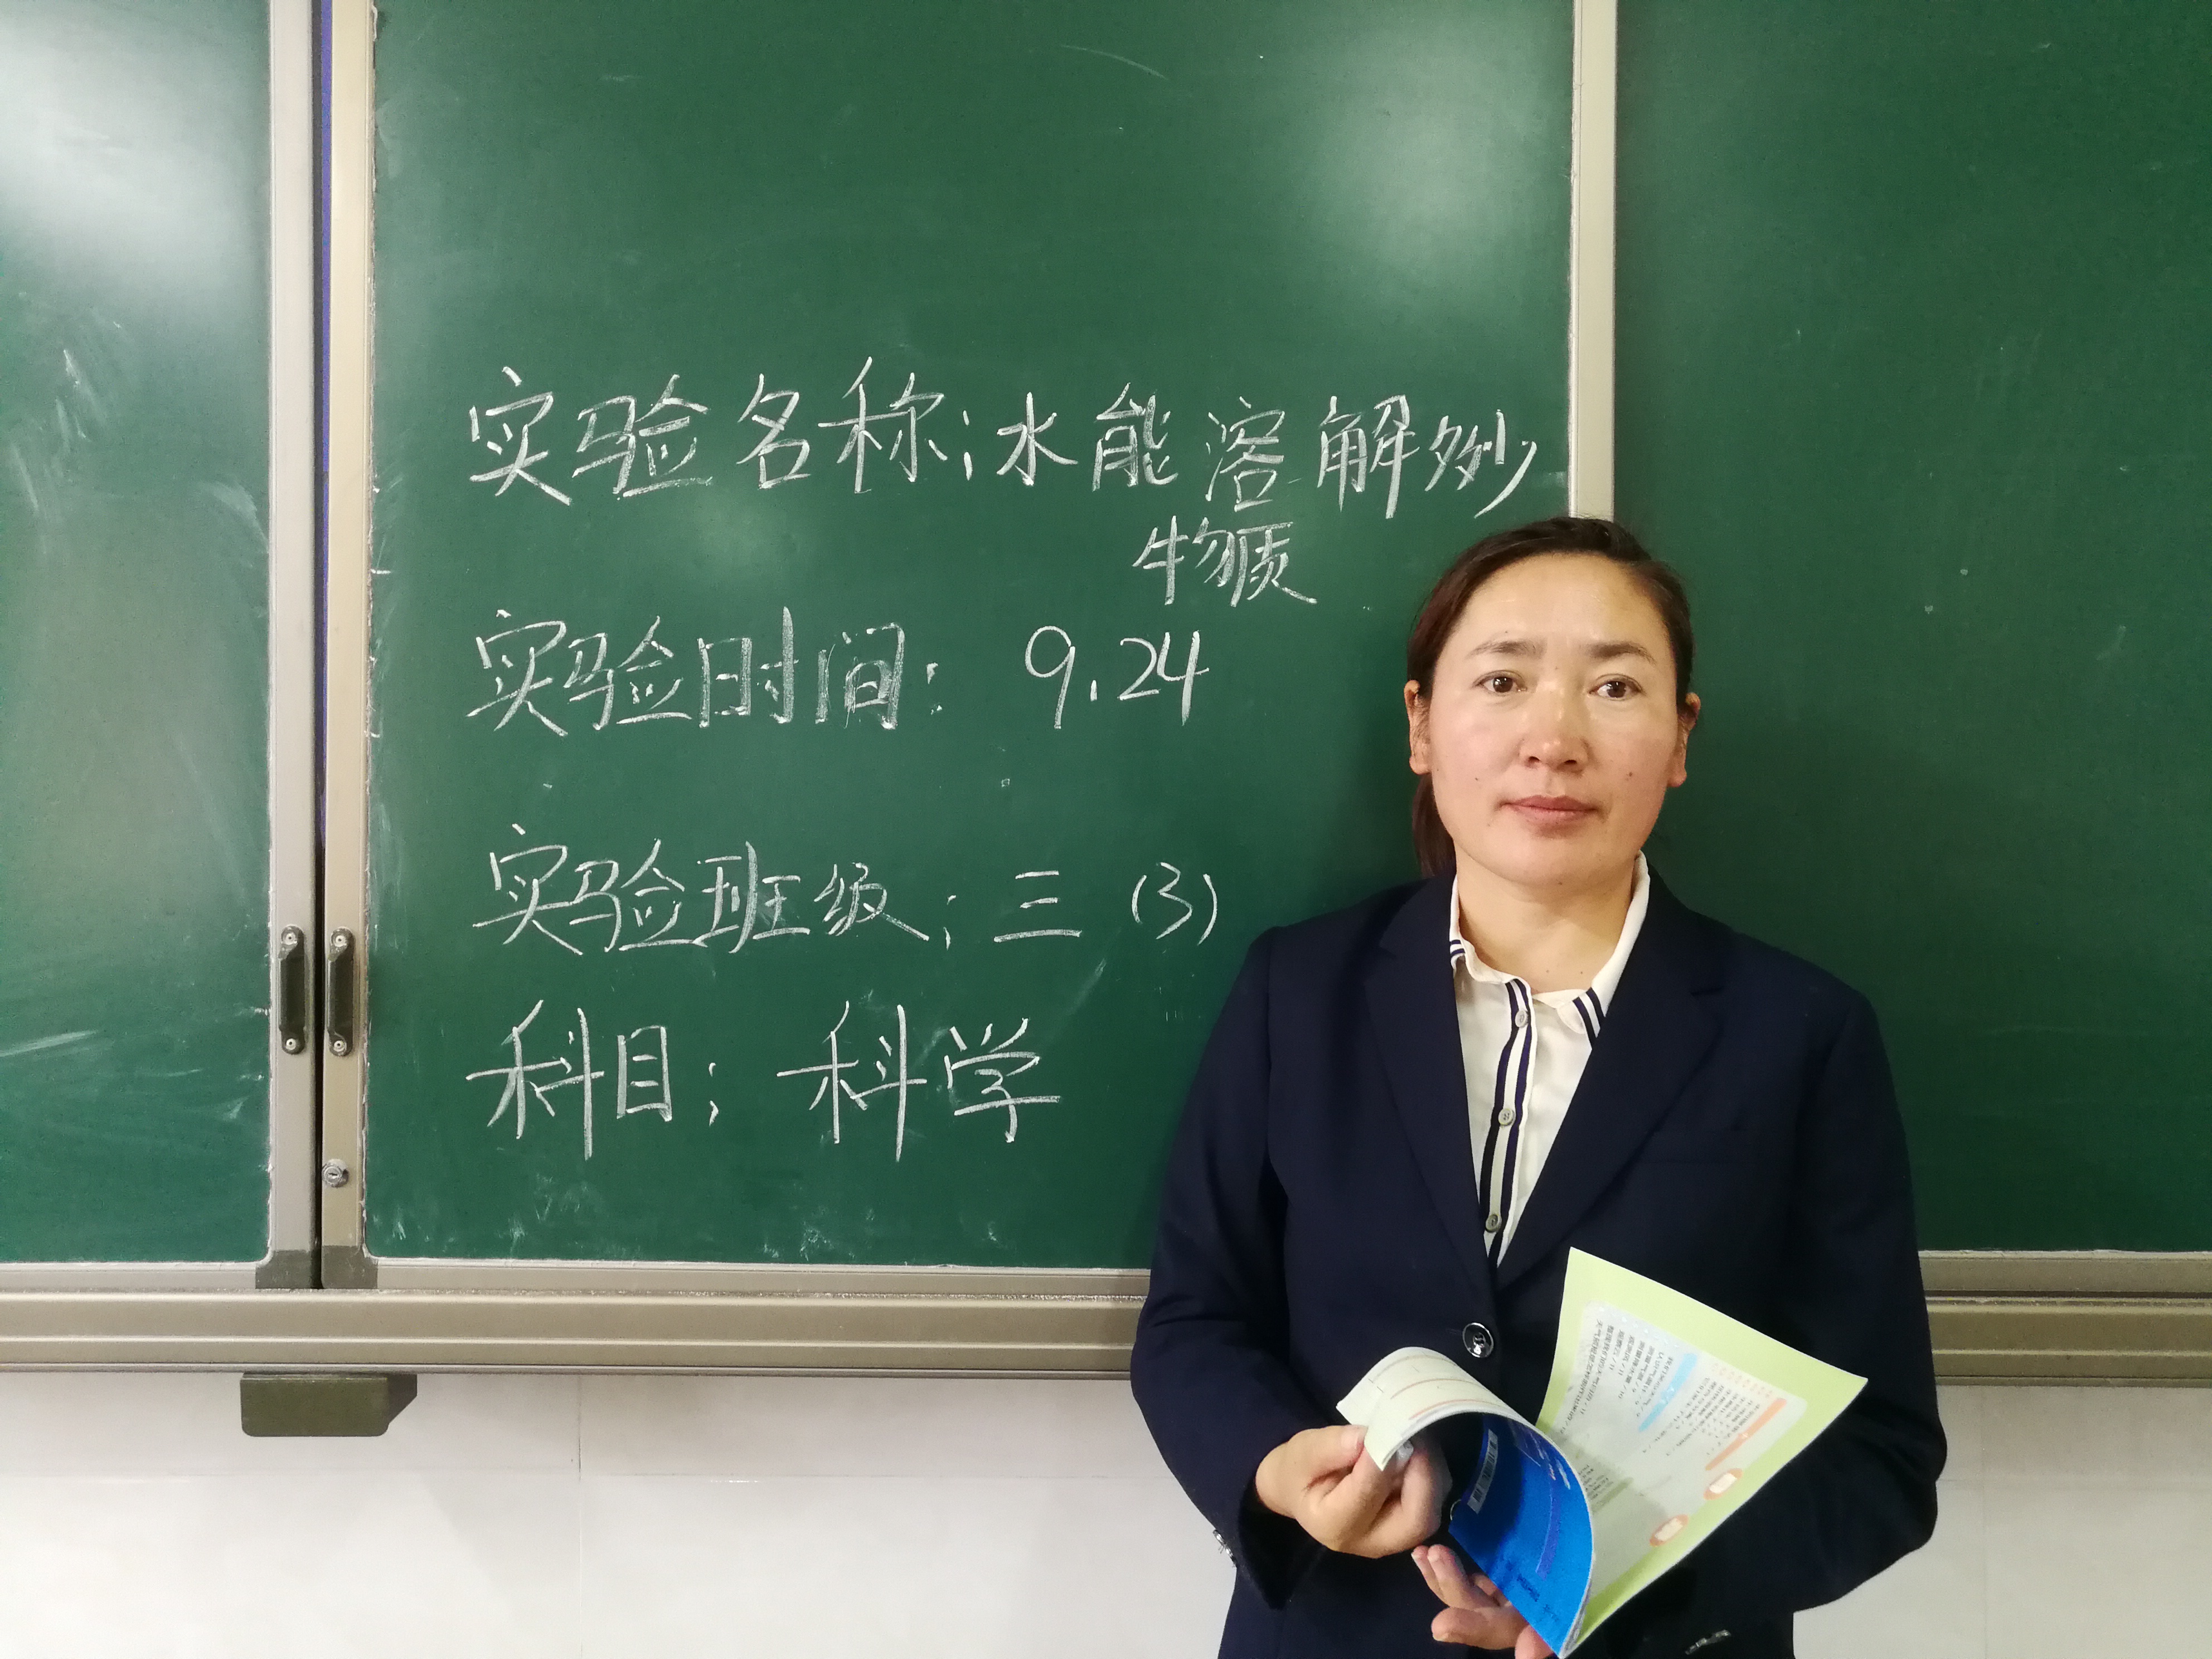 实验名称:水能溶解多少
物质
实验时间: 9.24
实验班级: 三 (3)
科目: 科学